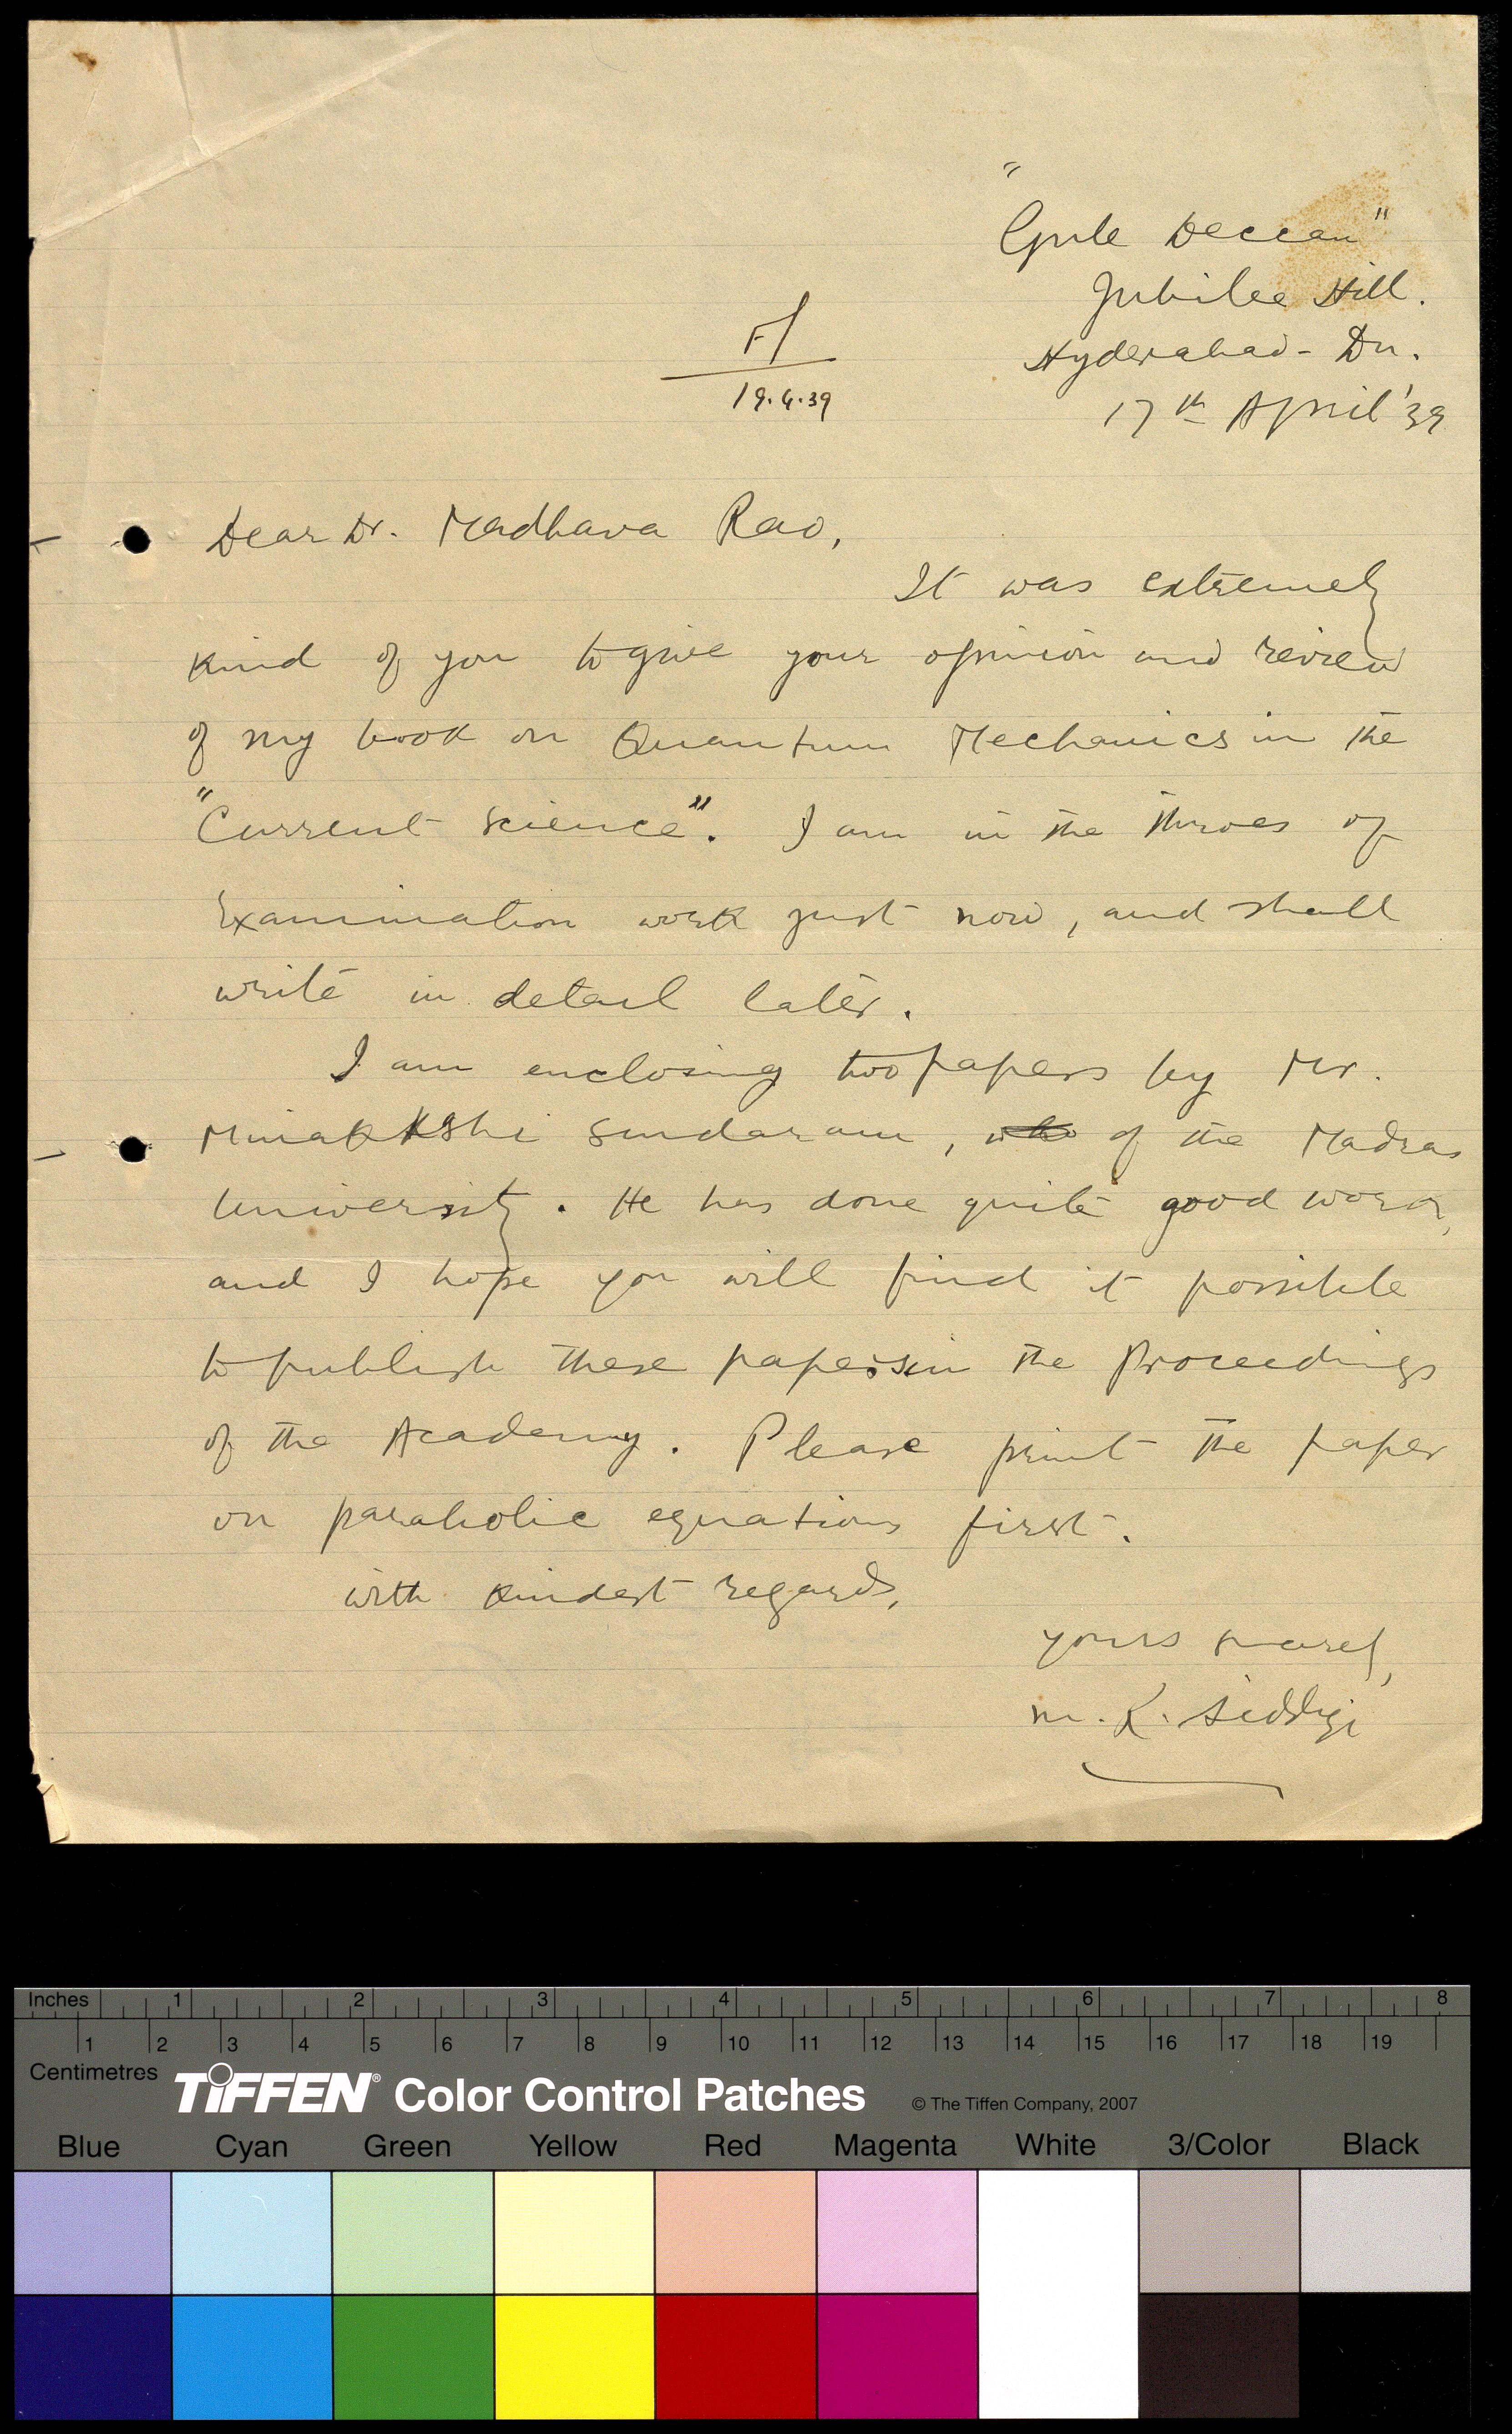 "Gule Deccan"
Jubilee Hill.
Hyderabad - Dn.
17th April '39
F/
19.4.39
Dear Dr. Madhava Rao,
It was extremely
kind of you to give your opinion and review
of my book on Quantum Mechanics in the
"Current Science". I am in the throes of
Examination work just now, and shall
write in detail later.
I am enclosing two papers by Mr.
Minakshi Sundaram, who of the Madras
University. He has done quite good work,
and I hope you will find it possible
to publish these papers in the Proceedings
of the Academy. Please print the paper
on parabolic equations first.
with kindest regards,
yours sincerely,
M. R. Siddiqi
Inches 1 2 3 4 5 6 7 8
1 2 3 4 5 6 7 8 9 10 11 12 13 14 15 16 17 18 19
Centimetres
TIFFEN® Color Control Patches © The Tiffen Company, 2007
Blue Cyan Green Yellow Red Magenta White 3/Color Black